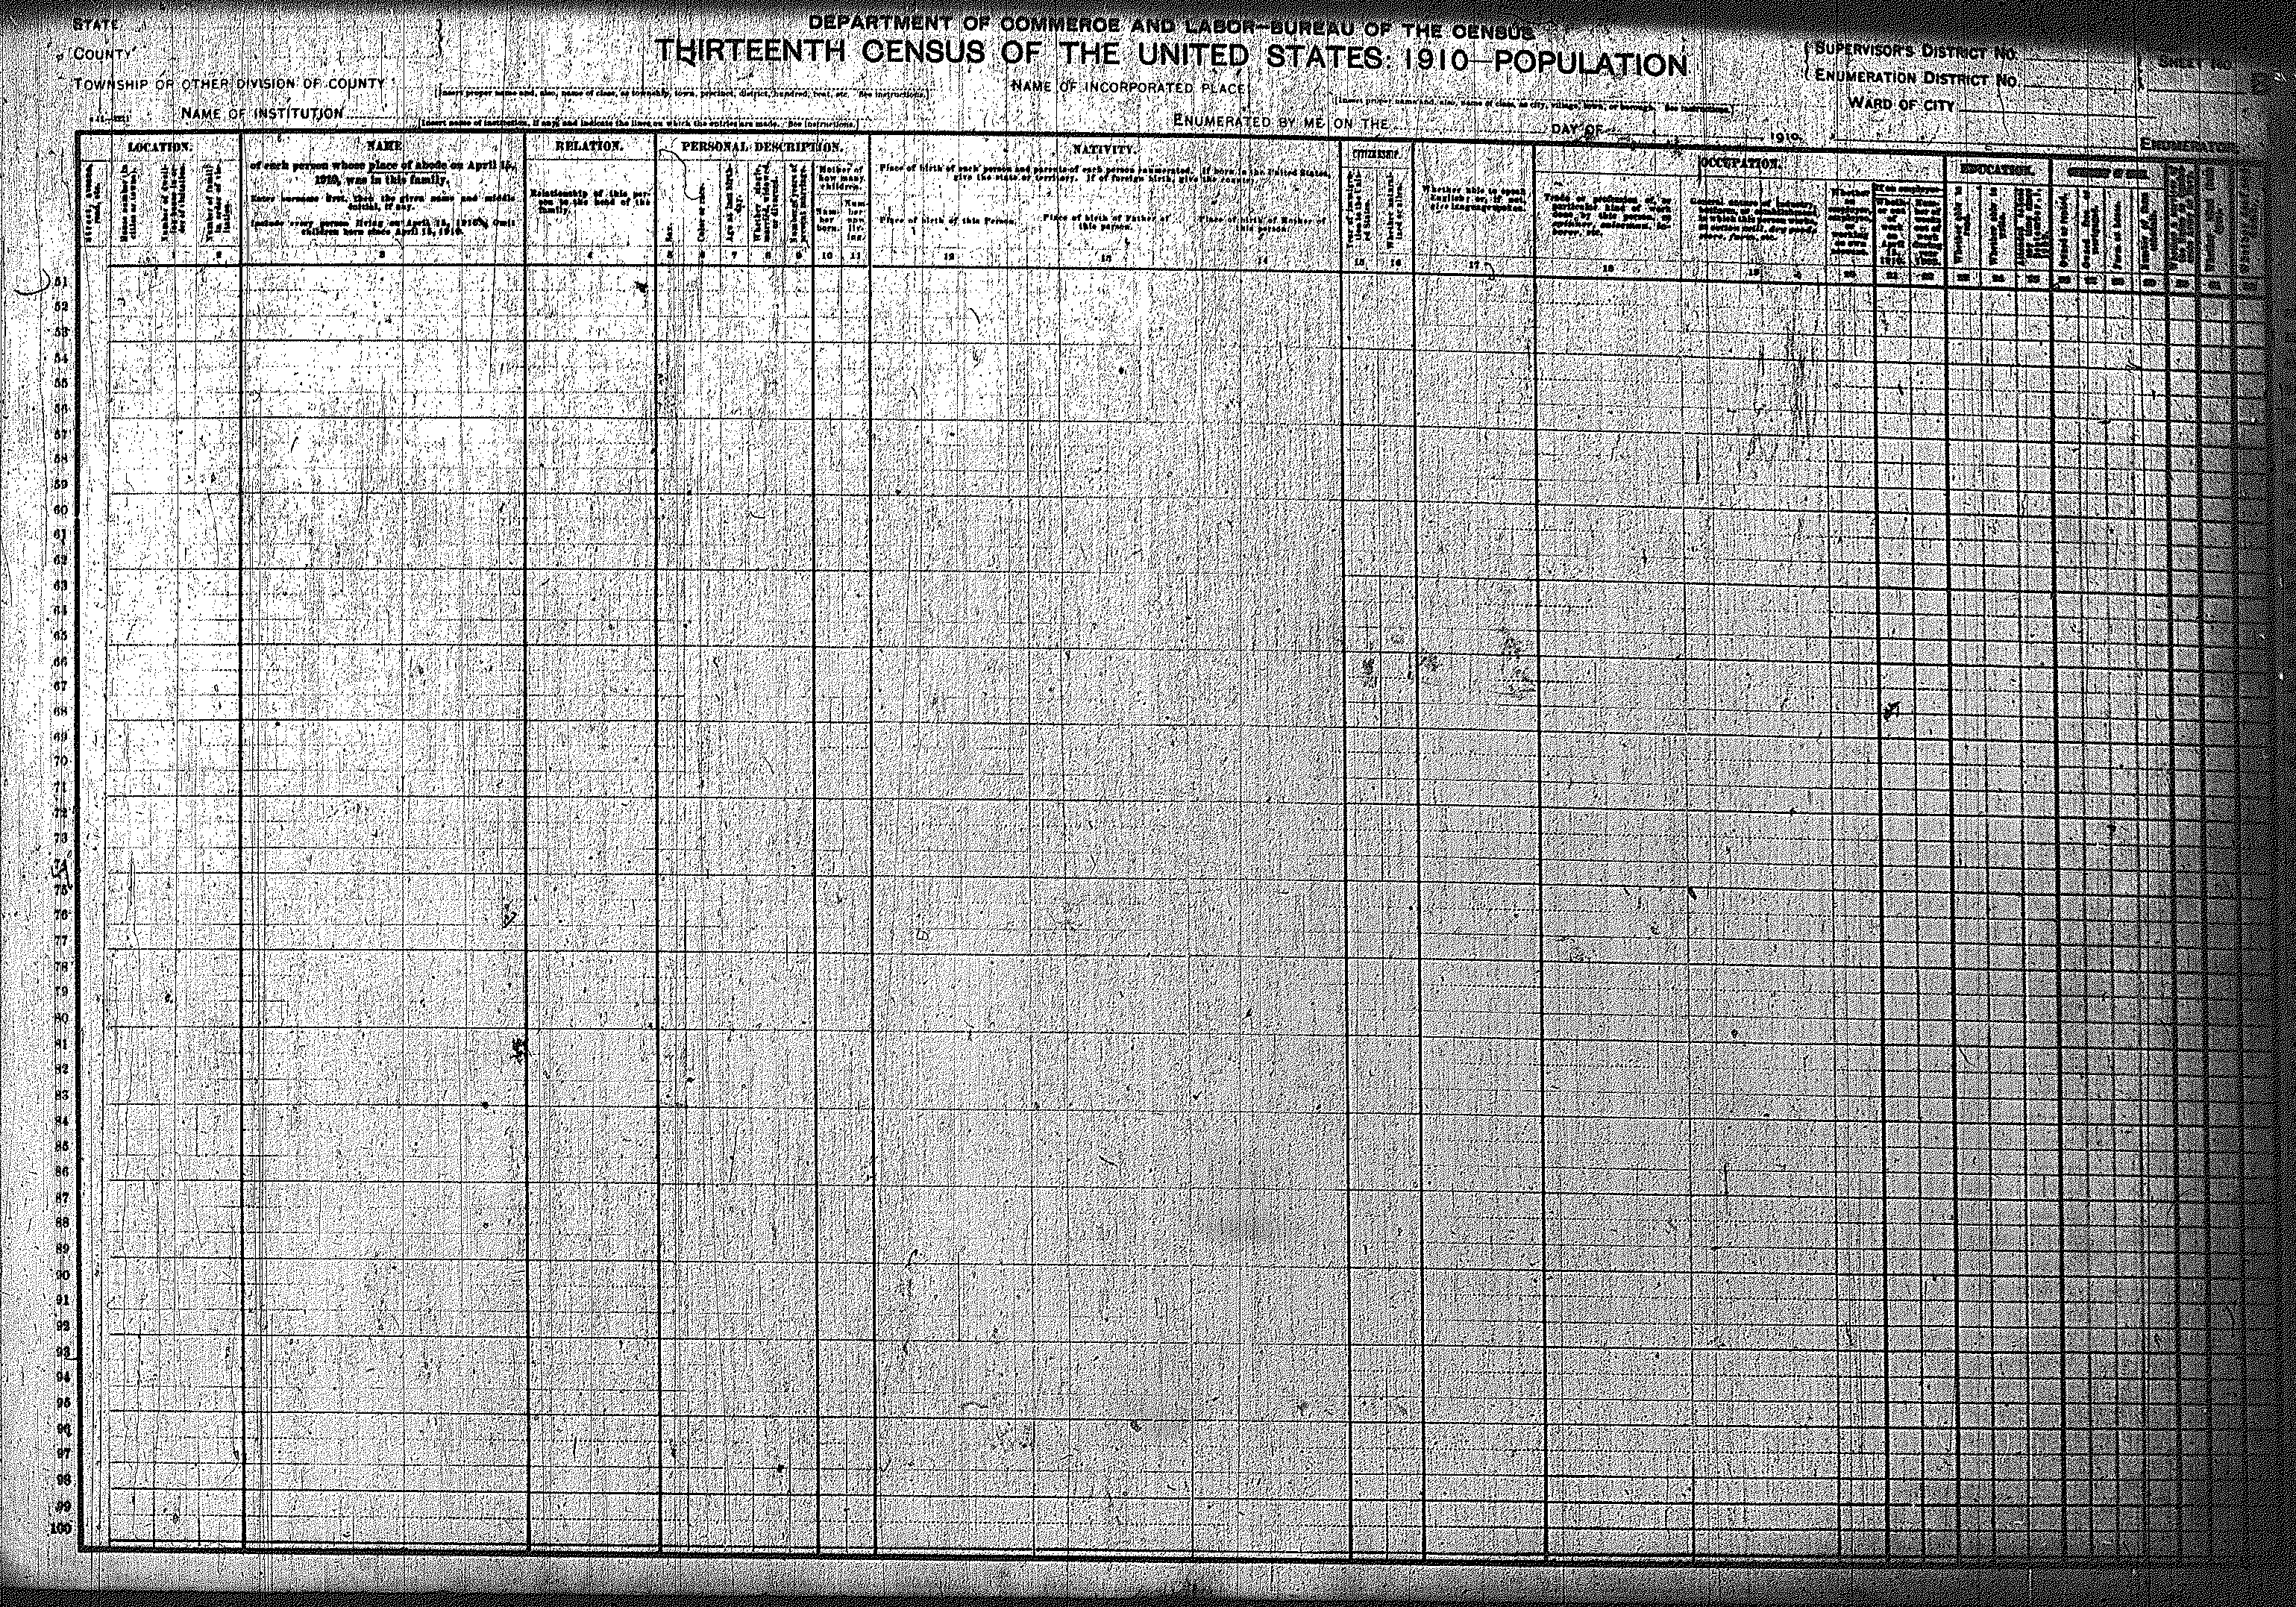 STATE
DEPARTMENT OF COMMERCE AND LABOR—BUREAU OF THE CENSUS
COUNTY
THIRTEENTH CENSUS OF THE UNITED STATES: 1910—POPULATION
SUPERVISOR'S DISTRICT NO.
SHEET NO.
TOWNSHIP OR OTHER DIVISION OF COUNTY
[Insert proper name and, also, name of class, as township, town, precinct, district, hundred, beat, etc. See instructions.]
NAME OF INCORPORATED PLACE
[Insert proper name and, also, name of class, as city, village, town, or borough. See instructions.]
ENUMERATION DISTRICT NO.
B
NAME OF INSTITUTION
[Insert name of institution, if any, and indicate the lines on which the entries are made. See instructions.]
ENUMERATED BY ME ON THE
DAY OF
1910.
WARD OF CITY
ENUMERATOR
LOCATION.
Number of family in order of visitation.
2
NAME
of each person whose place of abode on April 15,
1910, was in this family.
Enter surname first, then the given name and middle
initial, if any.
Include every person living on April 15, 1910. Omit
children born since April 15, 1910.
3
RELATION.
Relationship of this per-
son to the head of the
family.
4
PERSONAL DESCRIPTION.
Sex.
5
Color or race.
6
Age at last birth-
day.
7
Whether single,
married, widowed,
or divorced.
8
Number of years of
present marriage.
9
Mother of
how many
children.
Num-
ber
born.
10
Num-
ber
now
liv-
ing.
11
NATIVITY.
Place of birth of each person and parents of each person enumerated. If born in the United States,
give the state or territory. If of foreign birth, give the country.
Place of birth of this Person.
12
Place of birth of Father of
this person.
13
Place of birth of Mother of
this person.
14
CITIZENSHIP.
15
16
Whether able to speak
English; or, if not,
give language spoken.
17
OCCUPATION.
Trade or profession of, or
particular kind of work
done by this person, as
spinner, salesman, la-
borer, etc.
18
General nature of industry,
business, or establishment
in which this person works,
as cotton mill, dry goods
store, farm, etc.
19
20
21
22
EDUCATION.
Whether able to
read.
Whether able to
write.
OWNERSHIP OF HOME.
Owned or rented.
Owned free or
mortgaged.
Farm or house.
51
52
53
54
55
56
57
58
59
60
61
62
63
64
65
66
67
68
69
70
71
72
73
74
75
76
77
78
79
80
81
82
83
84
85
86
87
88
89
90
91
92
93
94
95
96
97
98
99
100